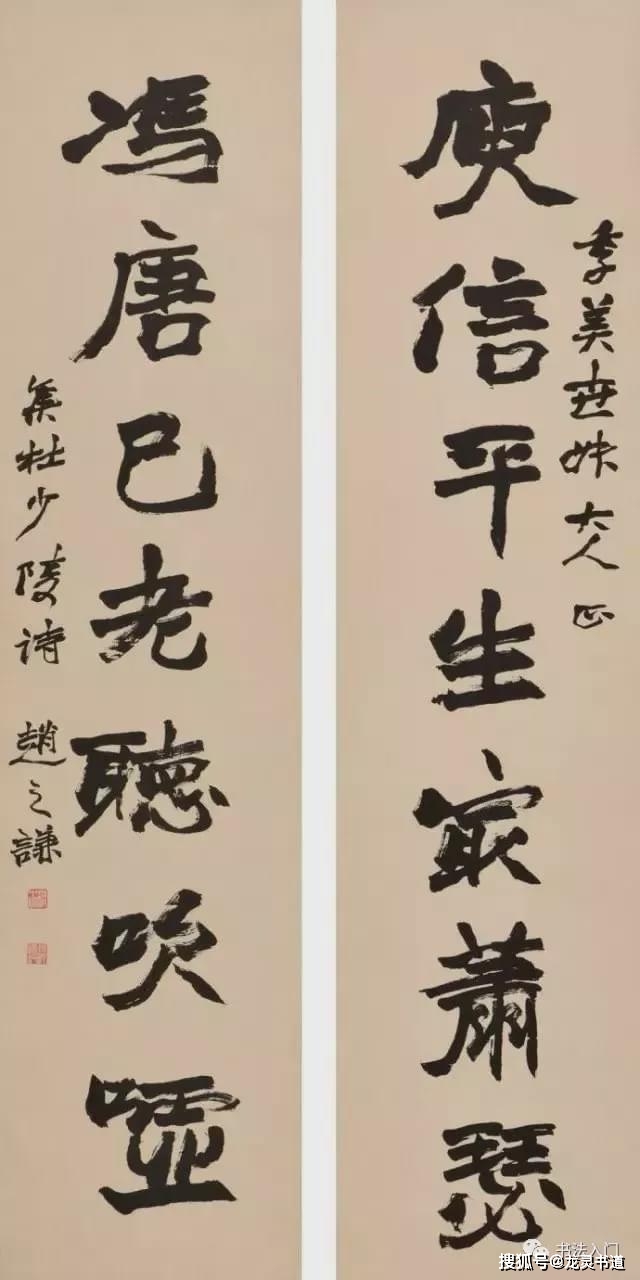 季美世妹大人正
庾信平生㝡蕭瑟
馮唐已老聽吹嘘
集杜少陵诗 趙之謙
书法入门
搜狐号@龙灵书道